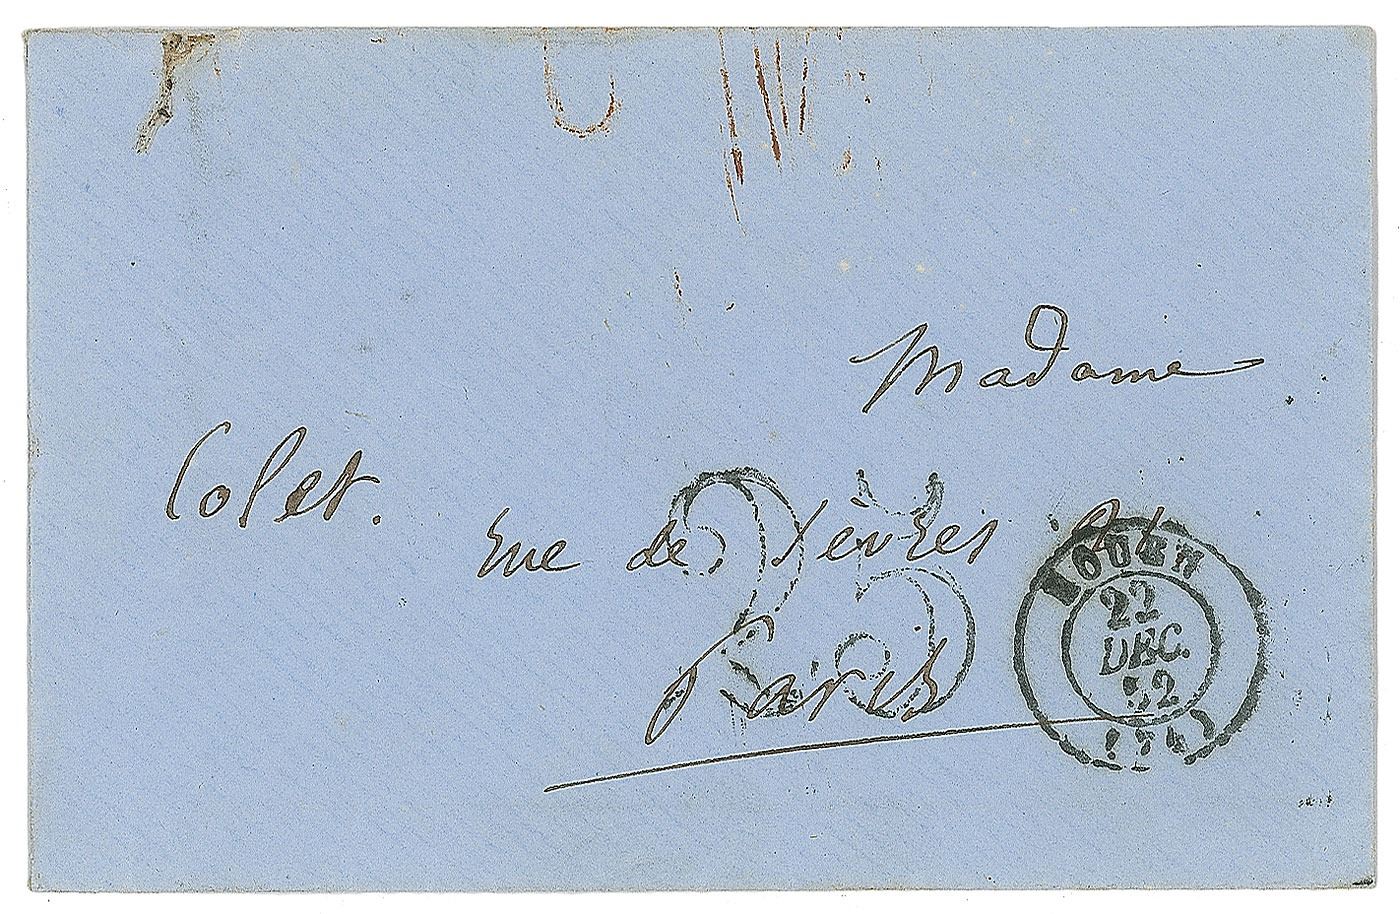 Madame
Colet.
rue de Sèvres 21.
Paris
25
ROUEN
22
DEC.
52
(74)